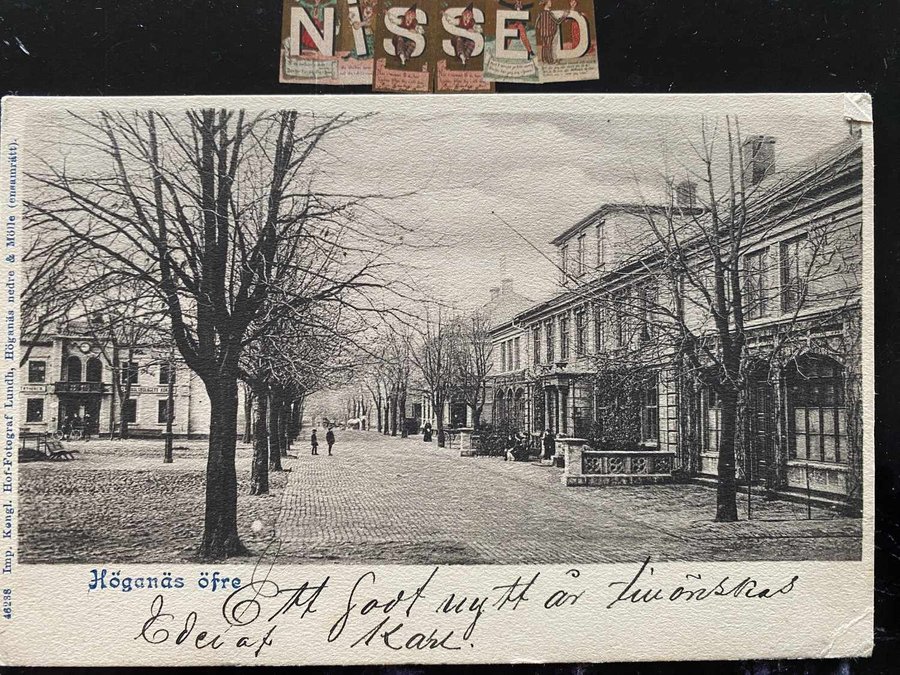 NISSED
46288 Imp. Kongl. Hof-Fotograf Lundh, Höganäs nedre & Mölle (ensamrätt).
Höganäs öfre
Ett godt nytt år tillönskas
Eder af Karl.